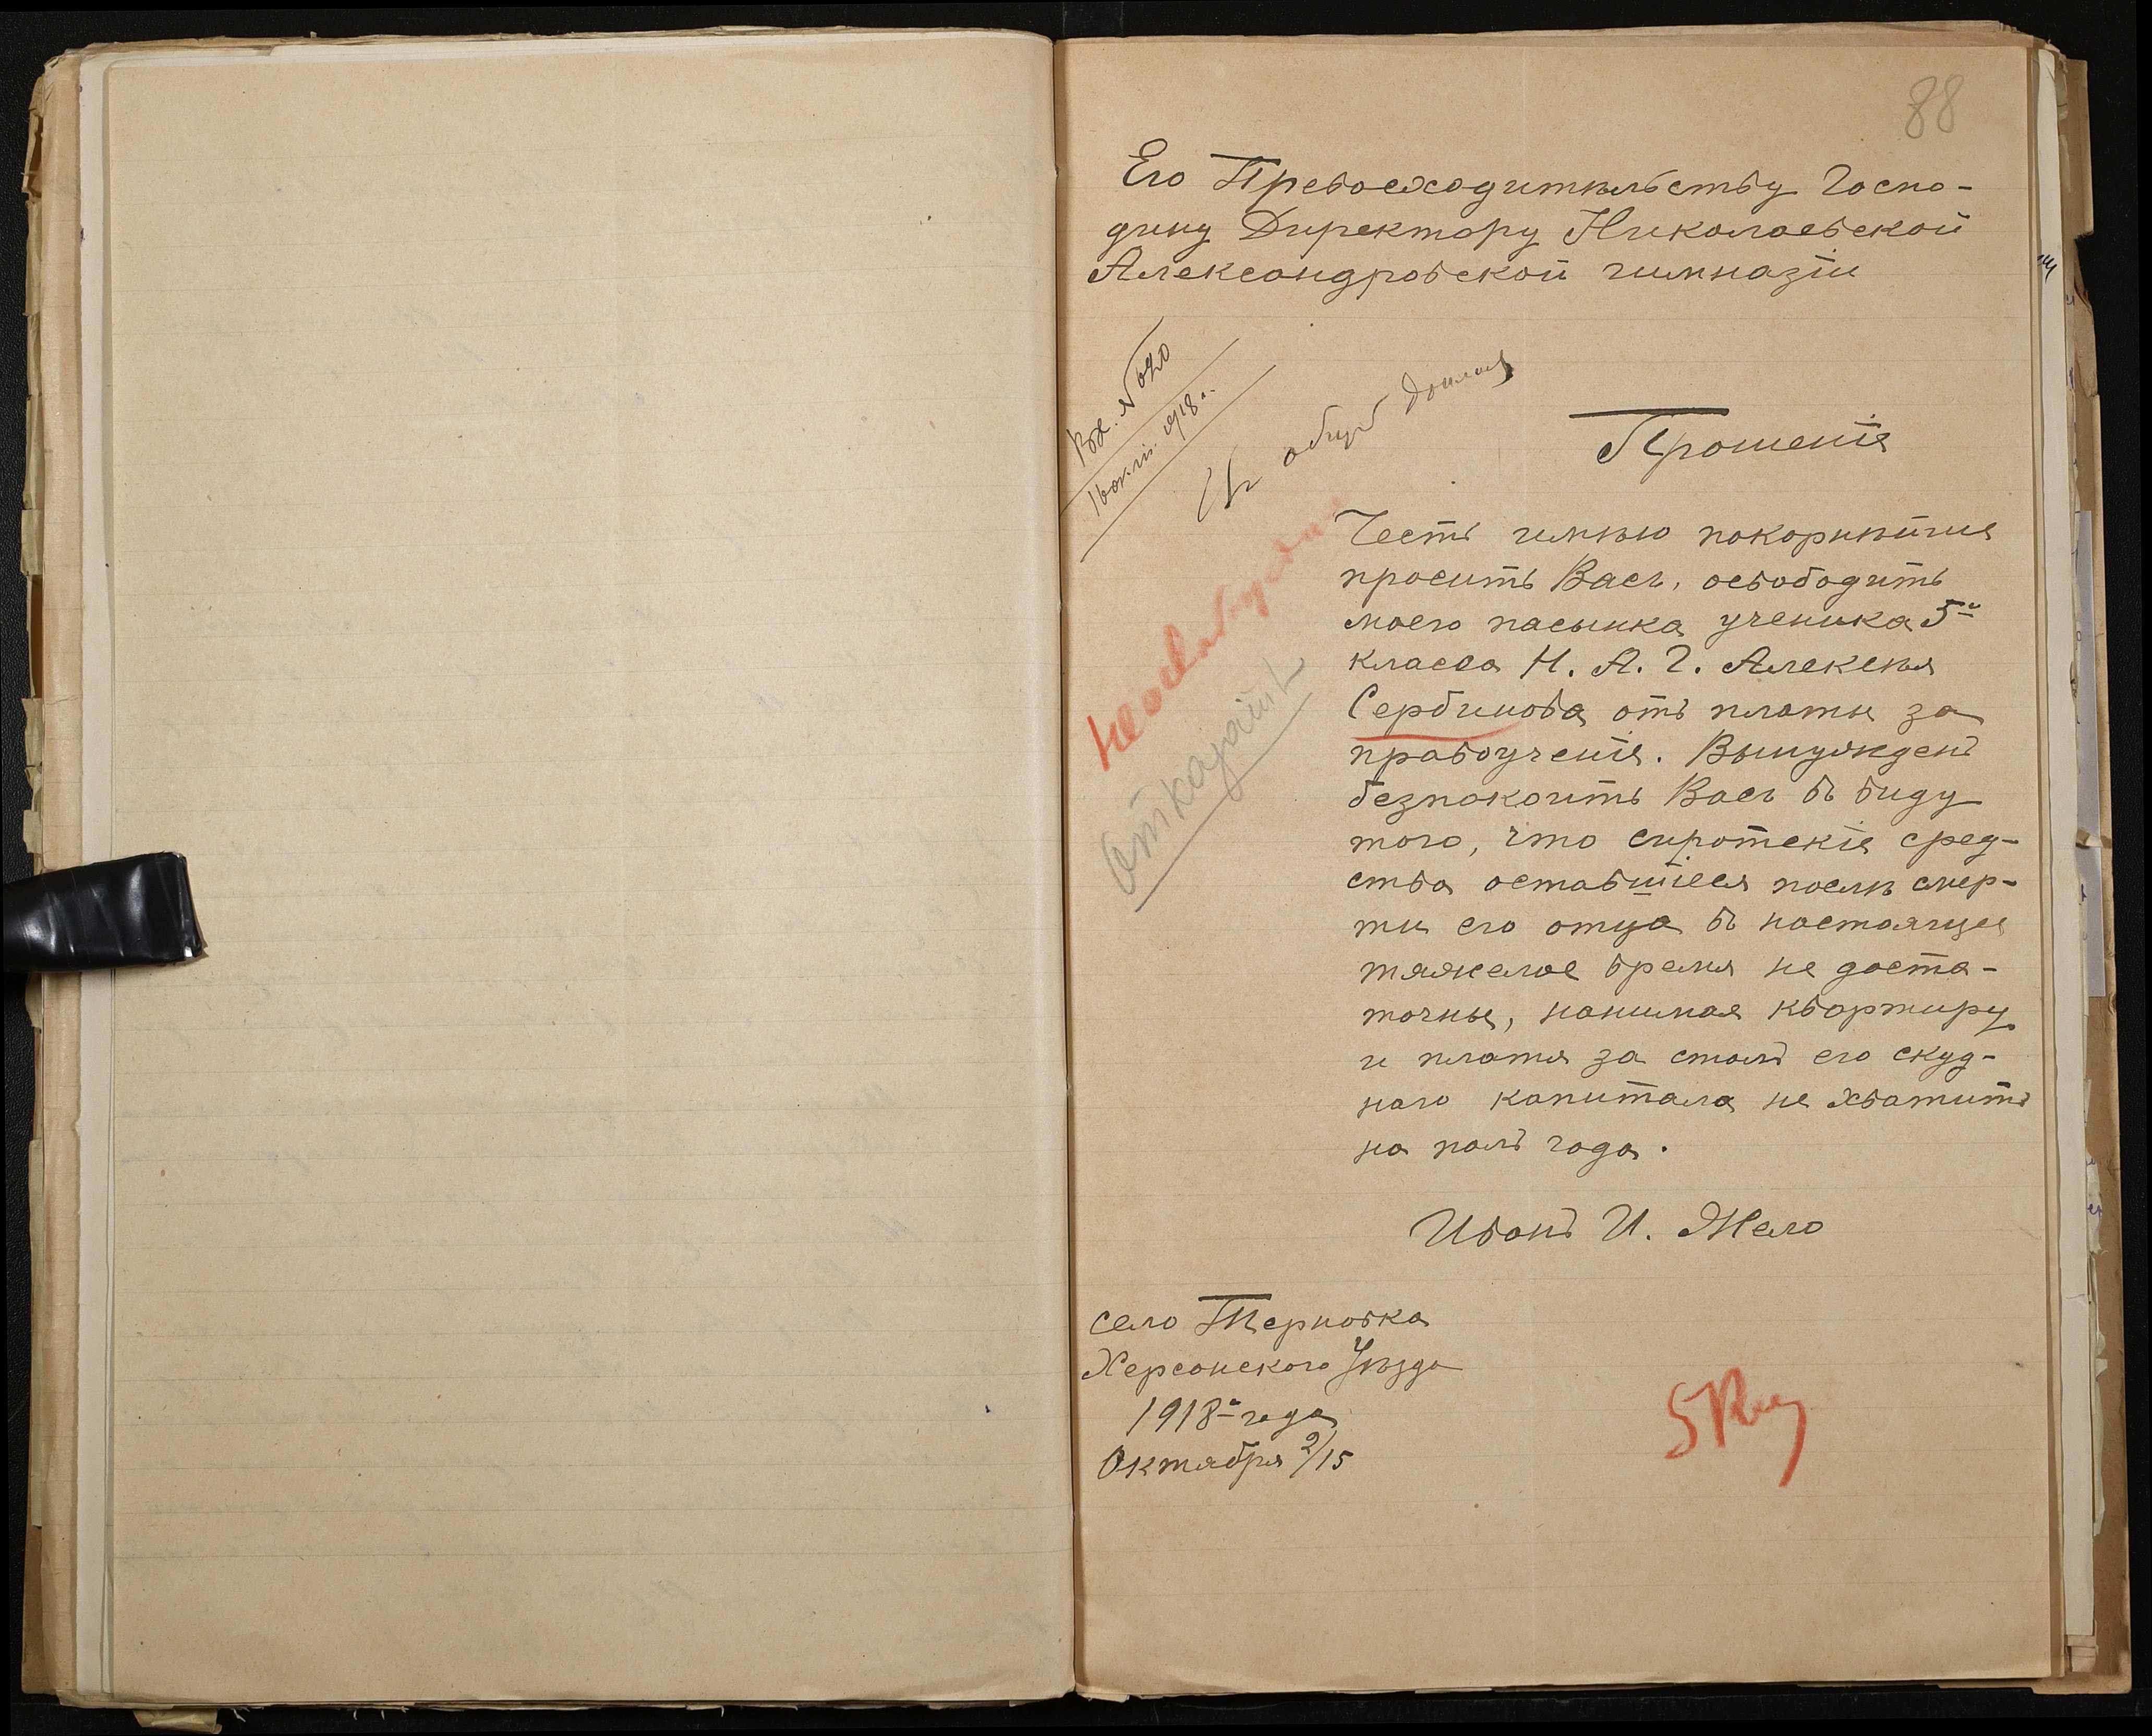 88
Его Превосходительству Госпо-
дину Директору Николаевской
Александровской гимназіи
Вх. № 690
16 окт. 1918 г.
Прошеніе
Честь имѣю покорнѣйше
просить Васъ, освободить
моего пасынка ученика 5го
класса Н. А. Г. Алексѣя
Сербинова отъ платы за
правоученіе. Вынужденъ
безпокоить Васъ въ виду
того, что сиротскіе сред-
ства оставшіеся послѣ смер-
ти его отца въ настоящее
тяжелое время не доста-
точны, нанимая квартиру
и платя за столъ его скуд-
наго капитала не хватитъ
на полъ года.
Отказать
Иванъ И. Жело
село Терновка
Херсонского Уѣзда
1918го года
Октября 2/15
5 кл